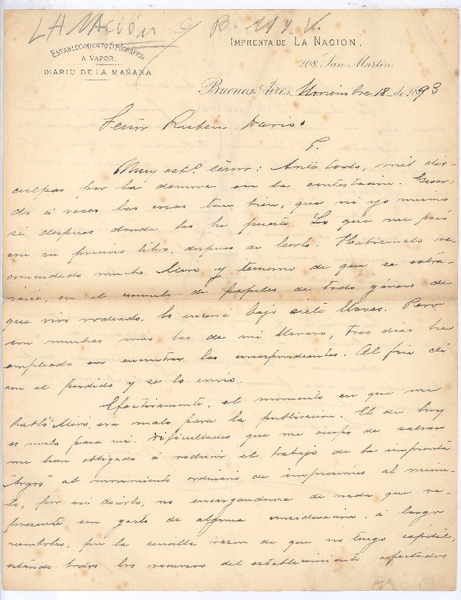 LA NACIÓN
ESTABLECIMIENTO TIPOGRÁFICO
A VAPOR
DIARIO DE LA MAÑANA
IMPRENTA DE LA NACION.
208. San Martin
Buenos Aires, Noviembre 18 de 1893
Señor Ruben Dario:
Muy est.º señor: Ante todo, mil dis-
culpas por la demora en la contestacion. Guar-
do á veces las cosas tan bien, que ni yo mismo
sé despues donde las he puesto. Lo que me pasó
con su precioso libro, despues de leerlo. Habiendolo re-
comendado mucho Miró y temeroso de que se estra-
viara, en el de papeles de todo género de
que vivo rodeado, lo encerré bajo siete llaves. Pero
son muchas mas las de mi llavero, tres dias he
empleado en encontrar las correspondientes. Al fin dí
con el perdido y se lo envio.
Efectivamente, el momento en que me
habló Miró, era malo para la publicacion. El de hoy
es malo para mí. Dificultades que me ocupo de salvar
me han obligado á reducir el trabajo de la imprenta
al movimiento ordinario de impresiones al menu-
do, por así decirlo, no encargandome de nada que re-
presente un gasto de alguna consideracion, á largo
reembolso, por la sencilla razon de que no tengo capital,
estando todos los recursos del establecimiento afectados